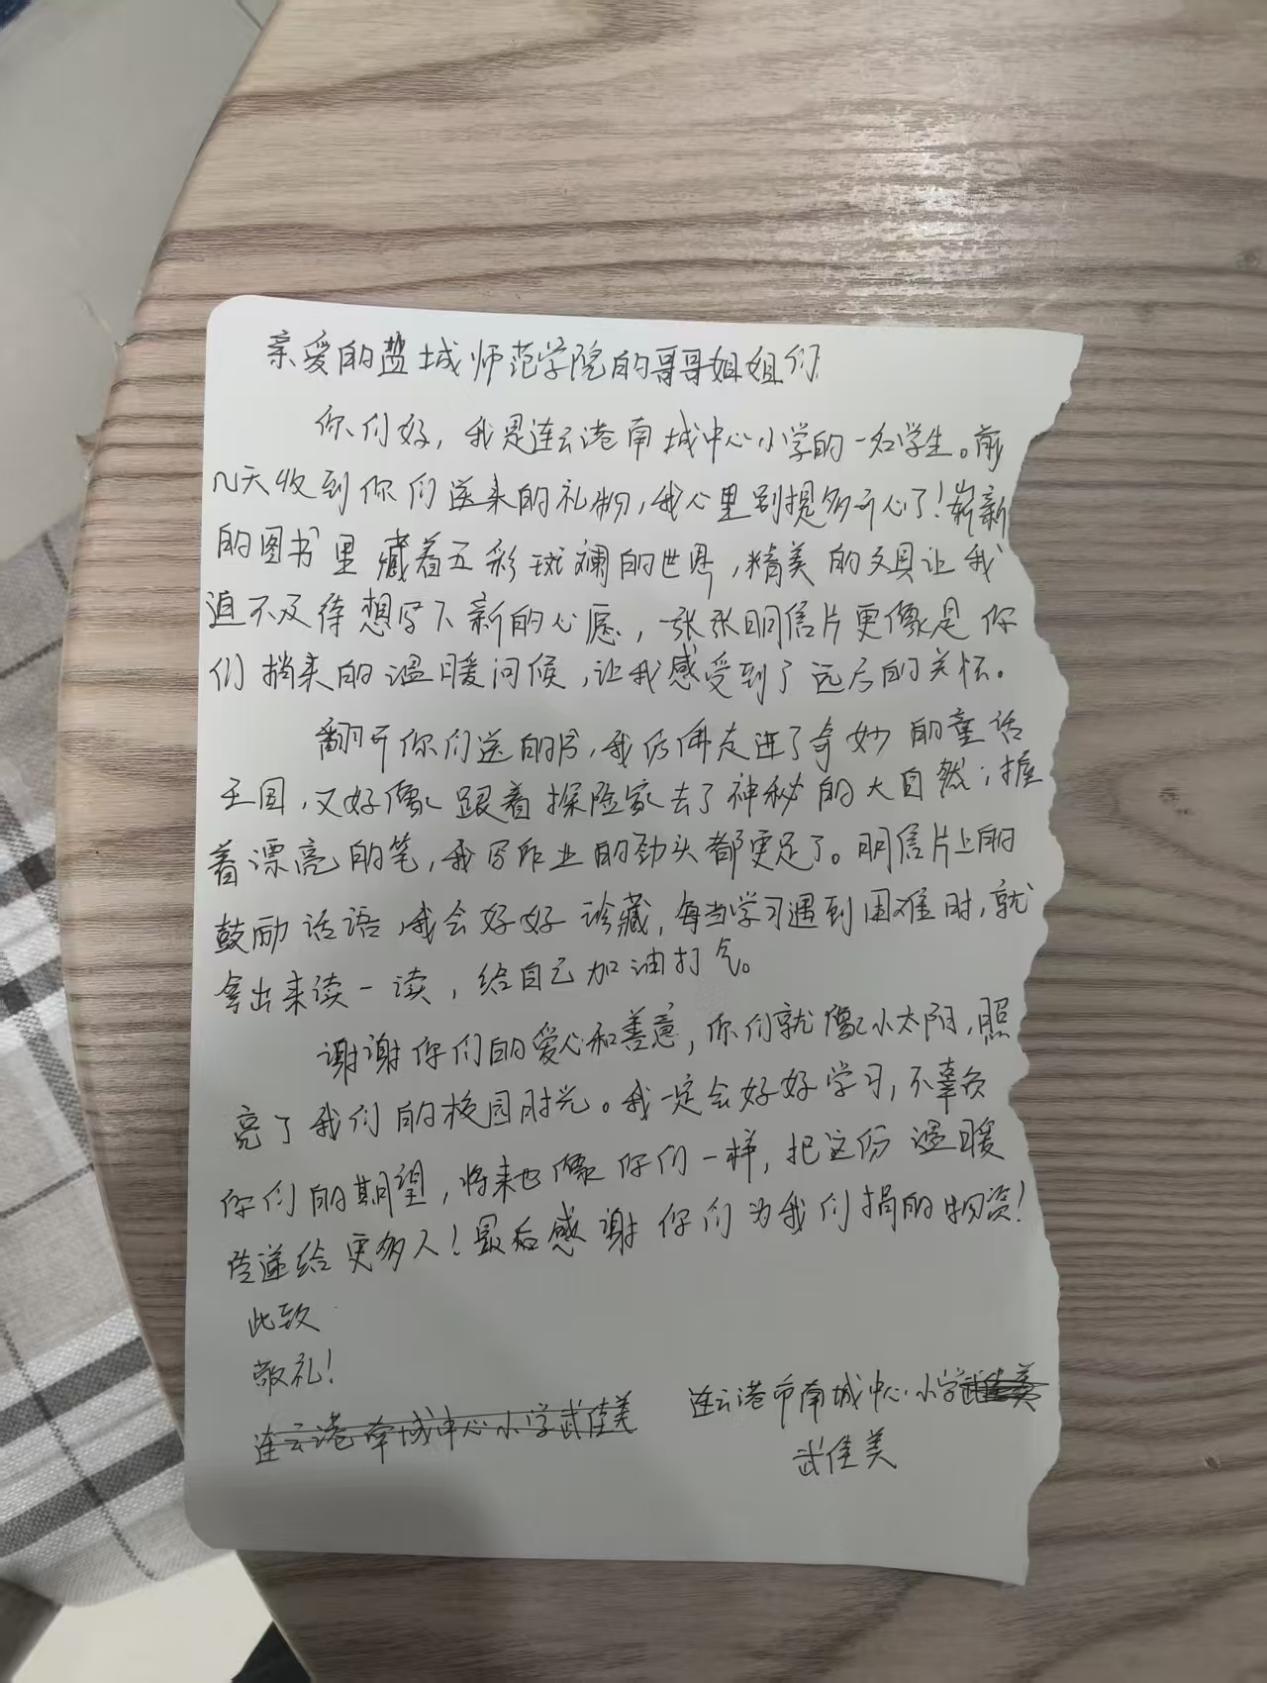 亲爱的盐城师范学院的哥哥姐姐们
你们好，我是连云港南城中心小学的一名学生。前
几天收到你们送来的礼物，我心里别提多开心了！崭新
的图书里藏着五彩斑斓的世界，精美的文具让我
迫不及待想写下新的心愿，一张张明信片更像是你
们捎来的温暖问候，让我感受到了远方的关怀。
翻开你们送的书，我仿佛走进了奇妙的童话
王国，又好像跟着探险家去了神秘的大自然；握
着漂亮的笔，我写作业的劲头都更足了。明信片上的
鼓励话语，我会好好珍藏，每当学习遇到困难时，就
拿出来读一读，给自己加油打气。
谢谢你们的爱心和善意，你们就像小太阳，照
亮了我们的校园时光。我一定会好好学习，不辜负
你们的期望，将来也像你们一样，把这份温暖
传递给更多人！最后感谢你们为我们捐的物资！
此致
敬礼！
连云港南城中心小学武佳美
连云港市南城中心小学武佳美
武佳美